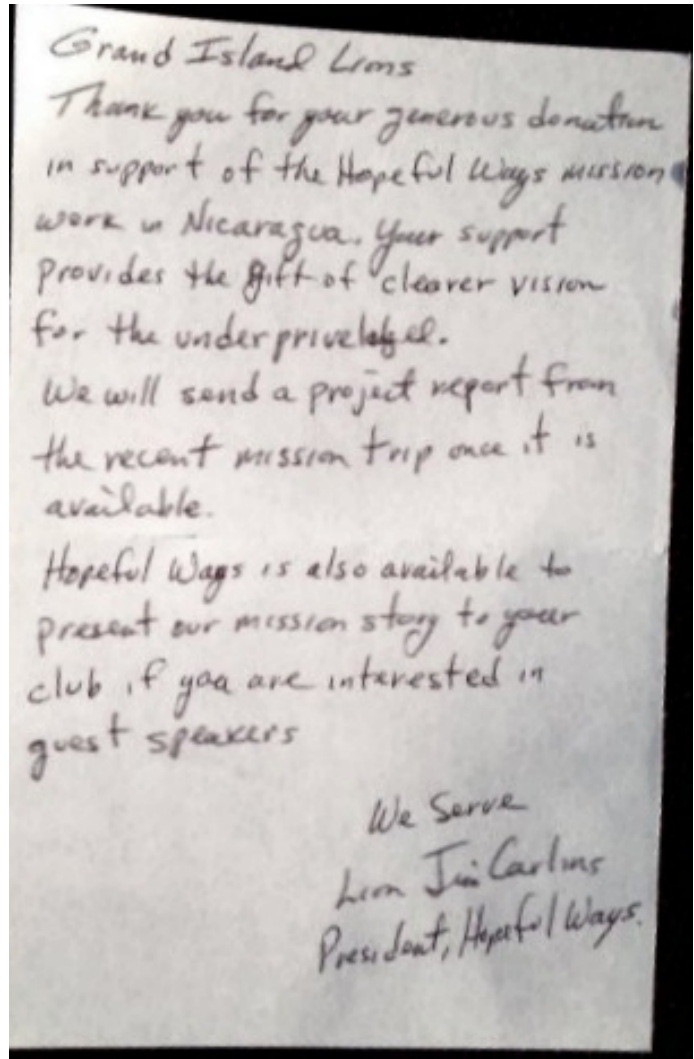 Grand Island Lions
Thank you for your generous donation
in support of the Hopeful Ways mission
work in Nicaragua. Your support
provides the gift of clearer vision
for the underpriveleged.
We will send a project report from
the recent mission trip once it is
available.
Hopeful Ways is also available to
present our mission story to your
club if you are interested in
guest speakers
We Serve
Lion Jim Carlins
President, Hopeful Ways.